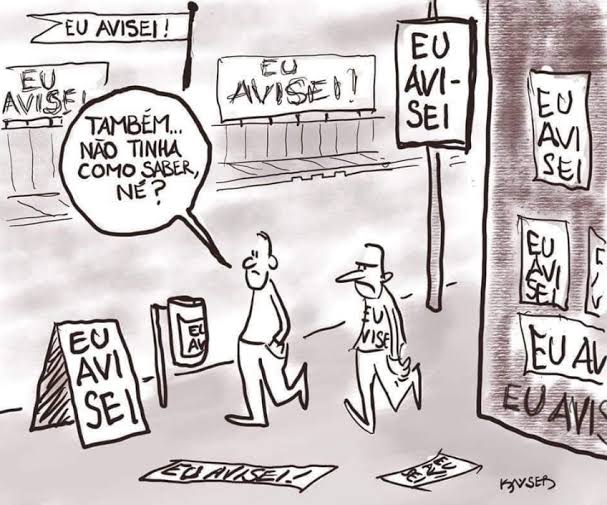 EU AVISEI!
EU
AVISEI
EU
AVISEI!
EU
AVI-
SEI
TAMBÉM...
NÃO TINHA
COMO SABER,
NÉ?
EU
AVI
SEI
EU
AVI
SEI
EU
AV
EU
VISE
EU
AVI
SEI
EU AV
EU AVIS
EU AVISEI!
KAYSER